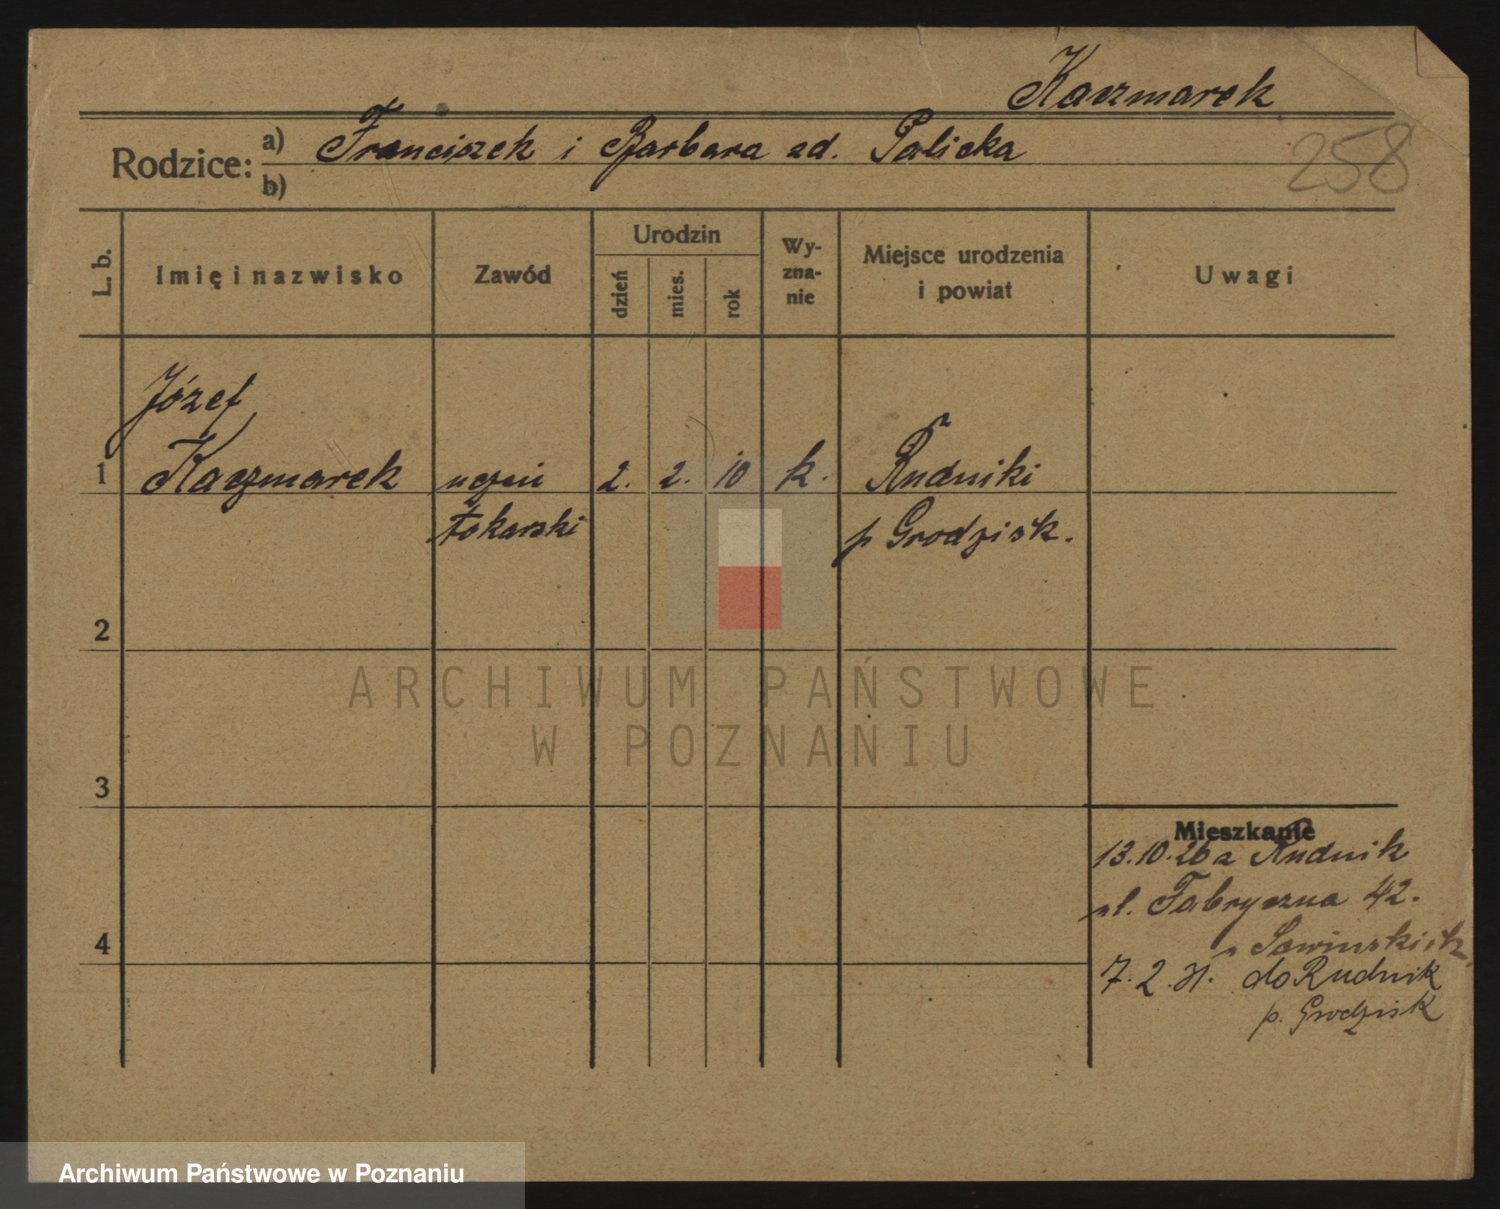 Kaczmarek
258
Rodzice: a) Franciszek i Barbara zd. Palicka
b)
L. b. Imię i nazwisko Zawód Urodzin dzień mies. rok Wy-zna-nie Miejsce urodzenia i powiat Uwagi
Józef
1 Kaczmarek uczeń 2. 2. 10 k. Rudniki
tokarski p Grodzisk.
2
3
4
Mieszkanie
13.10.26 a Rudnik
ul. Fabryczna 42.
7. 2. 31. do Rudnik
p. Grodzisk
ARCHIWUM PAŃSTWOWE
W POZNANIU
Archiwum Państwowe w Poznaniu